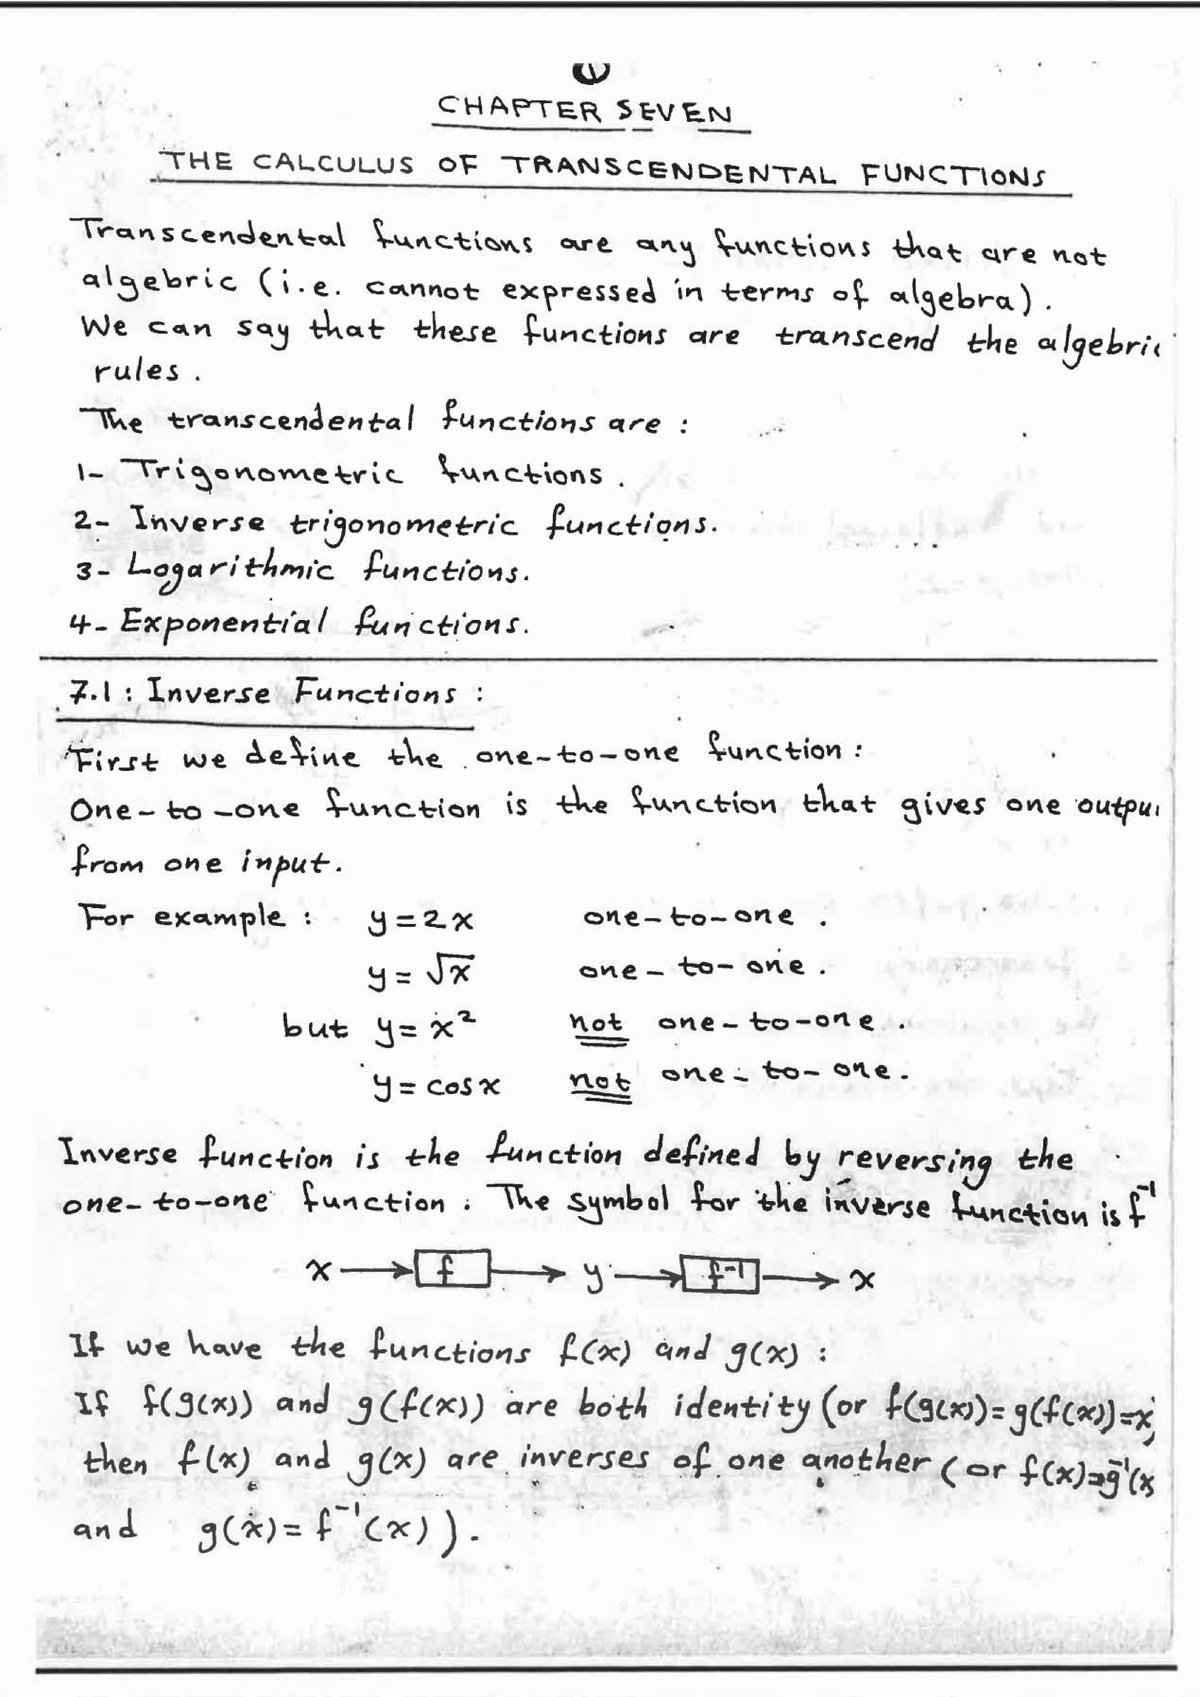 1
CHAPTER SEVEN
THE CALCULUS OF TRANSCENDENTAL FUNCTIONS
Transcendental functions are any functions that are not
algebric (i.e. cannot expressed in terms of algebra).
We can say that these functions are transcend the algebric
rules.
The transcendental functions are :
1- Trigonometric functions.
2- Inverse trigonometric functions.
3- Logarithmic functions.
4- Exponential functions.
7.1 : Inverse Functions :
First we define the one-to-one function :
One-to-one function is the function that gives one outpu
from one input.
For example : y = 2x one-to-one .
y = √x one-to-one .
but y = x² not one-to-one .
y = cos x not one-to-one .
Inverse function is the function defined by reversing the
one-to-one function . The symbol for the inverse function is f⁻¹
x → f → y → f⁻¹ → x
If we have the functions f(x) and g(x) :
If f(g(x)) and g(f(x)) are both identity (or f(g(x))=g(f(x))=x)
then f(x) and g(x) are inverses of one another (or f(x)=g⁻¹(x
and g(x) = f⁻¹(x) ).